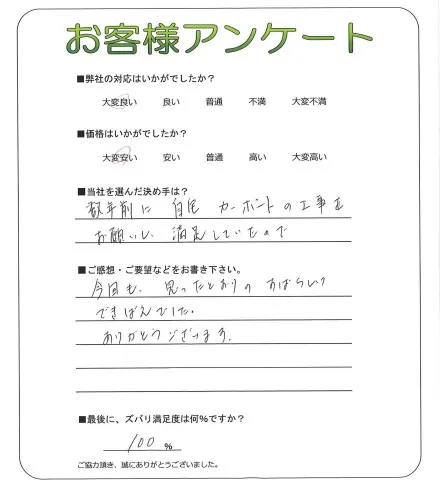 お客様アンケート
■弊社の対応はいかがでしたか?
大変良い 良い 普通 不満 大変不満
■価格はいかがでしたか?
大変安い 安い 普通 高い 大変高い
■当社を選んだ決め手は?
数年前に 自宅 カーポートの工事を
お願いし、満足していたので
■ご感想・ご要望などをお書き下さい。
今回も、思ったとおりの すばらしい
できばえでした。
ありがとうございます。
■最後に、ズバリ満足度は何%ですか?
100 %
ご協力頂き、誠にありがとうございました。